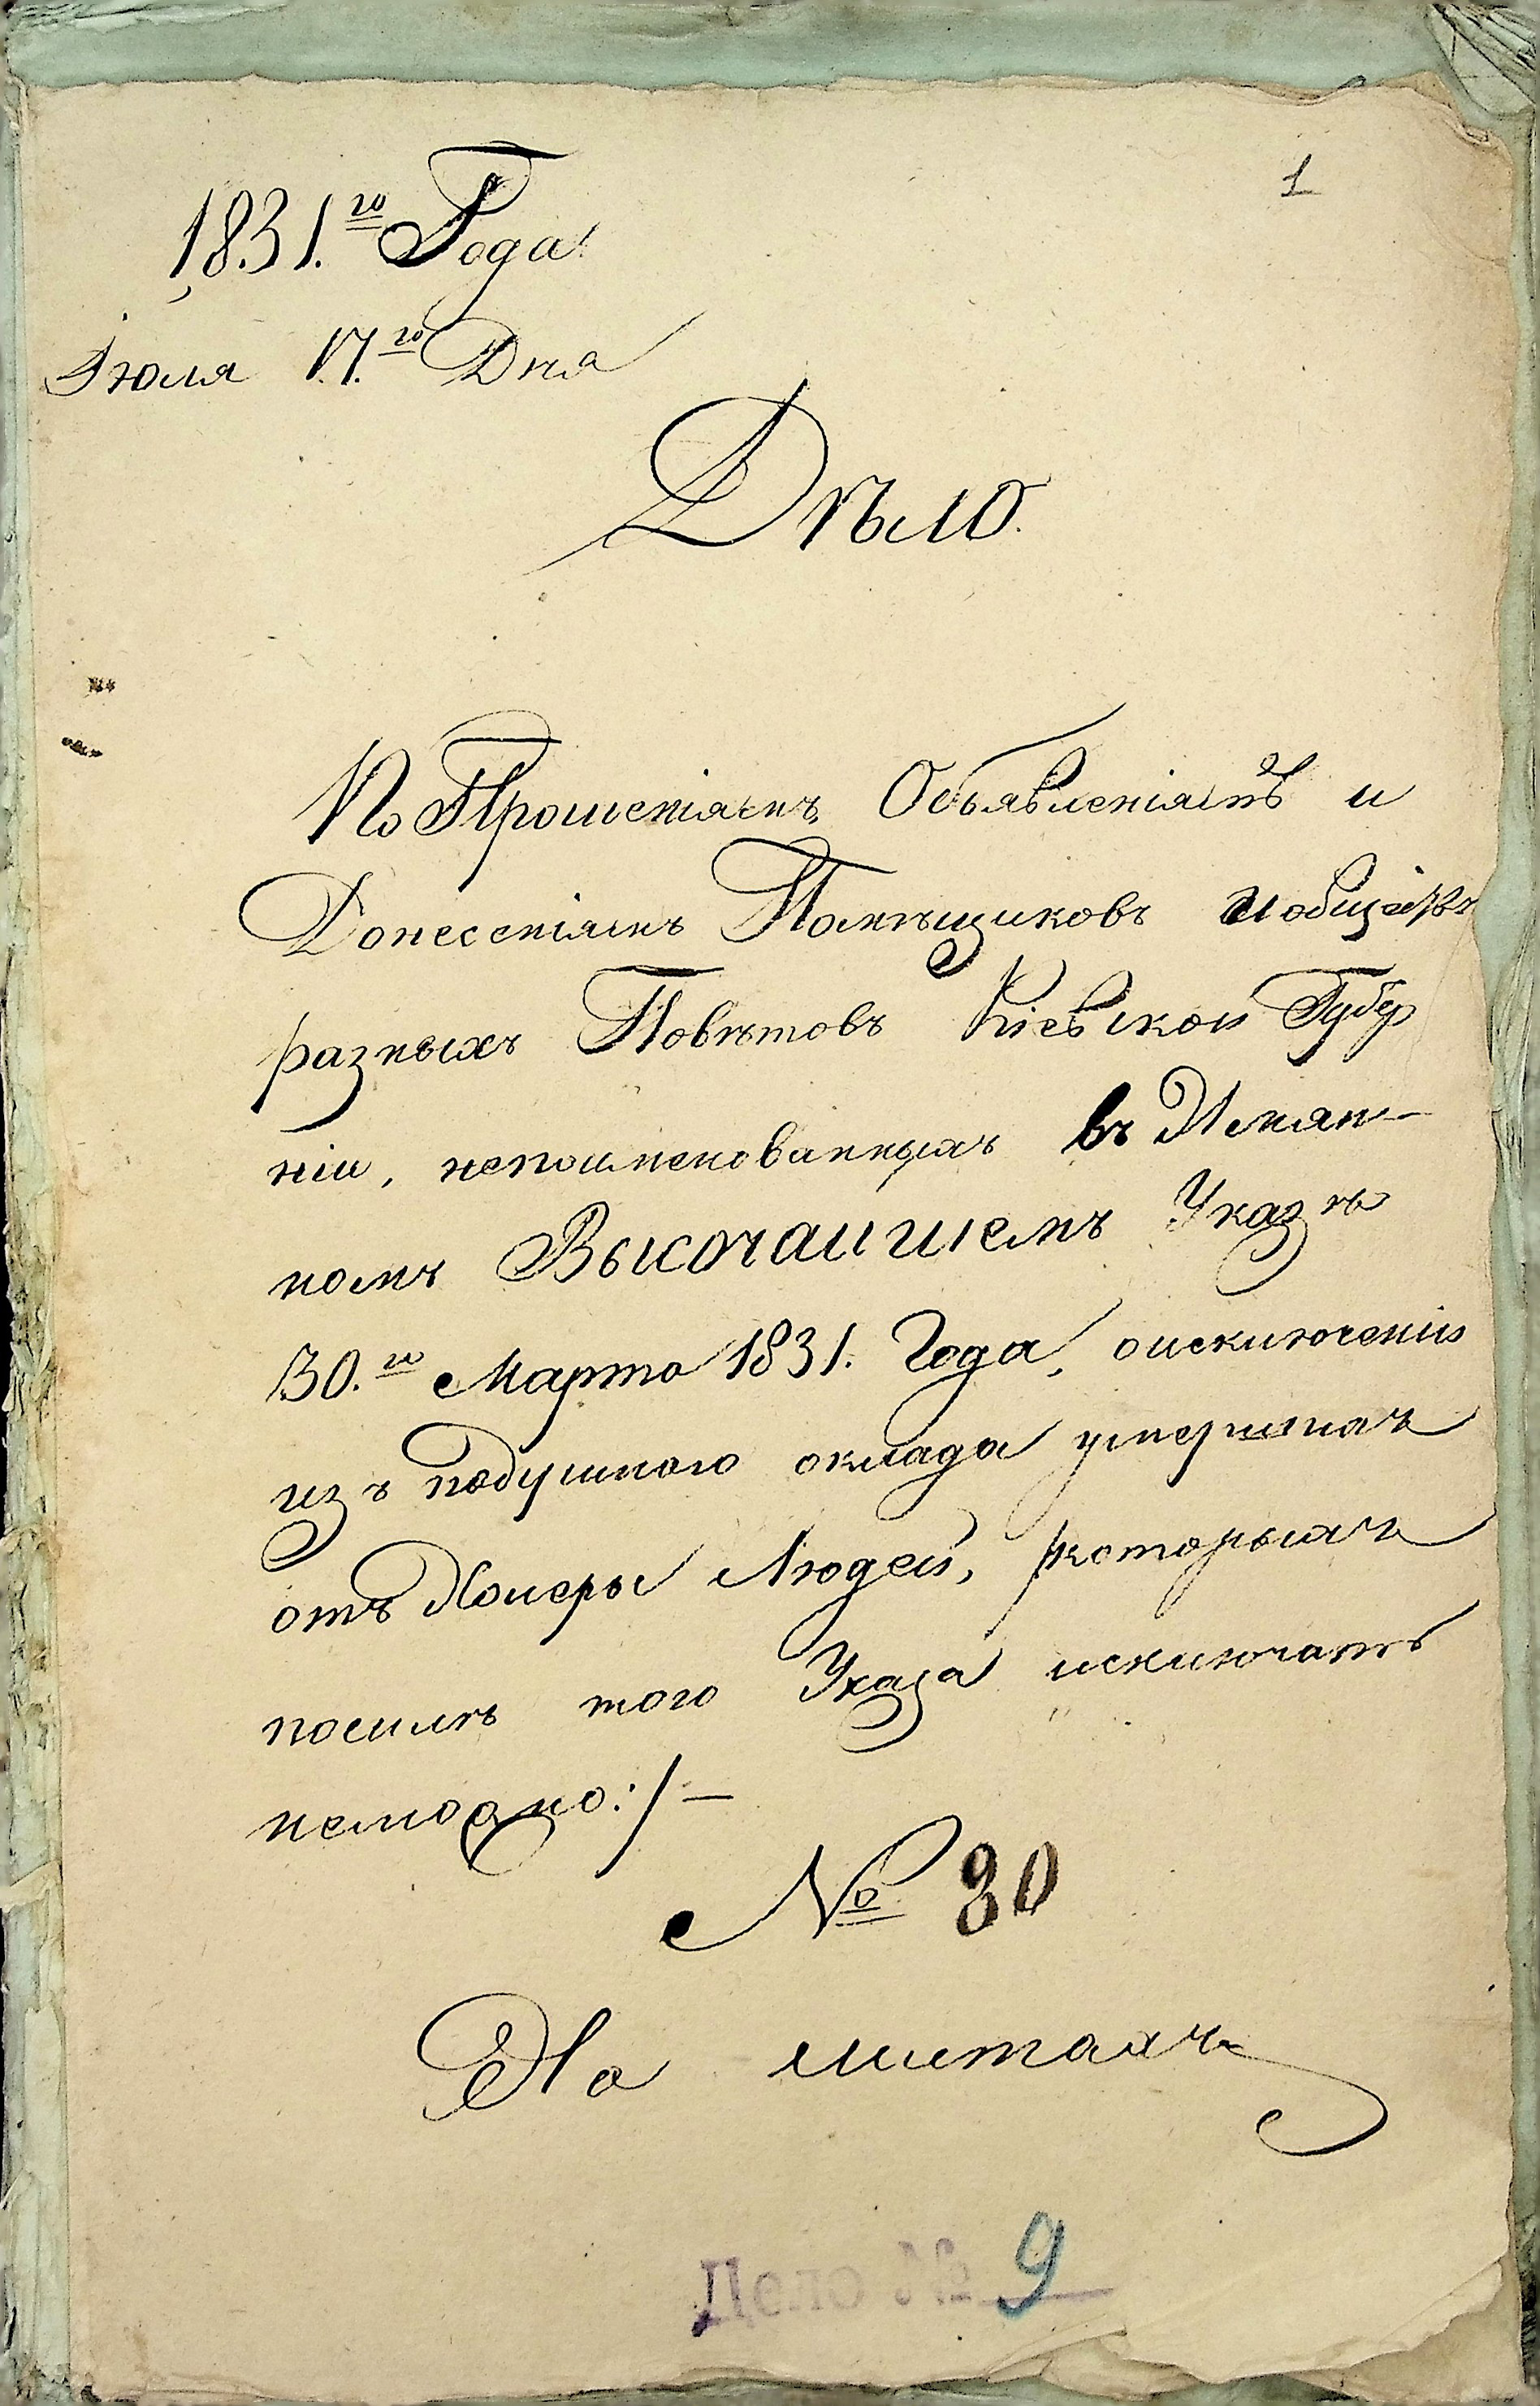 1
1831.го Года
Іюля 17.го Дня
Дѣло.
По Прошеніямъ, Объявленіямъ и
Донесеніямъ Помѣщиковъ иобществъ
разныхъ Повѣтовъ Кіевской Губер
ніи, непоименованныхъ въ Имян-
номъ Высочайшемъ Указѣ
30.го Марта 1831. Года, оисключеніи
изъ подушного оклада умершихъ
отъ Холеры Людей, которыхъ
посилѣ того Указа исключать
неможно:/—
№ 30
На листахъ
Дело № 9